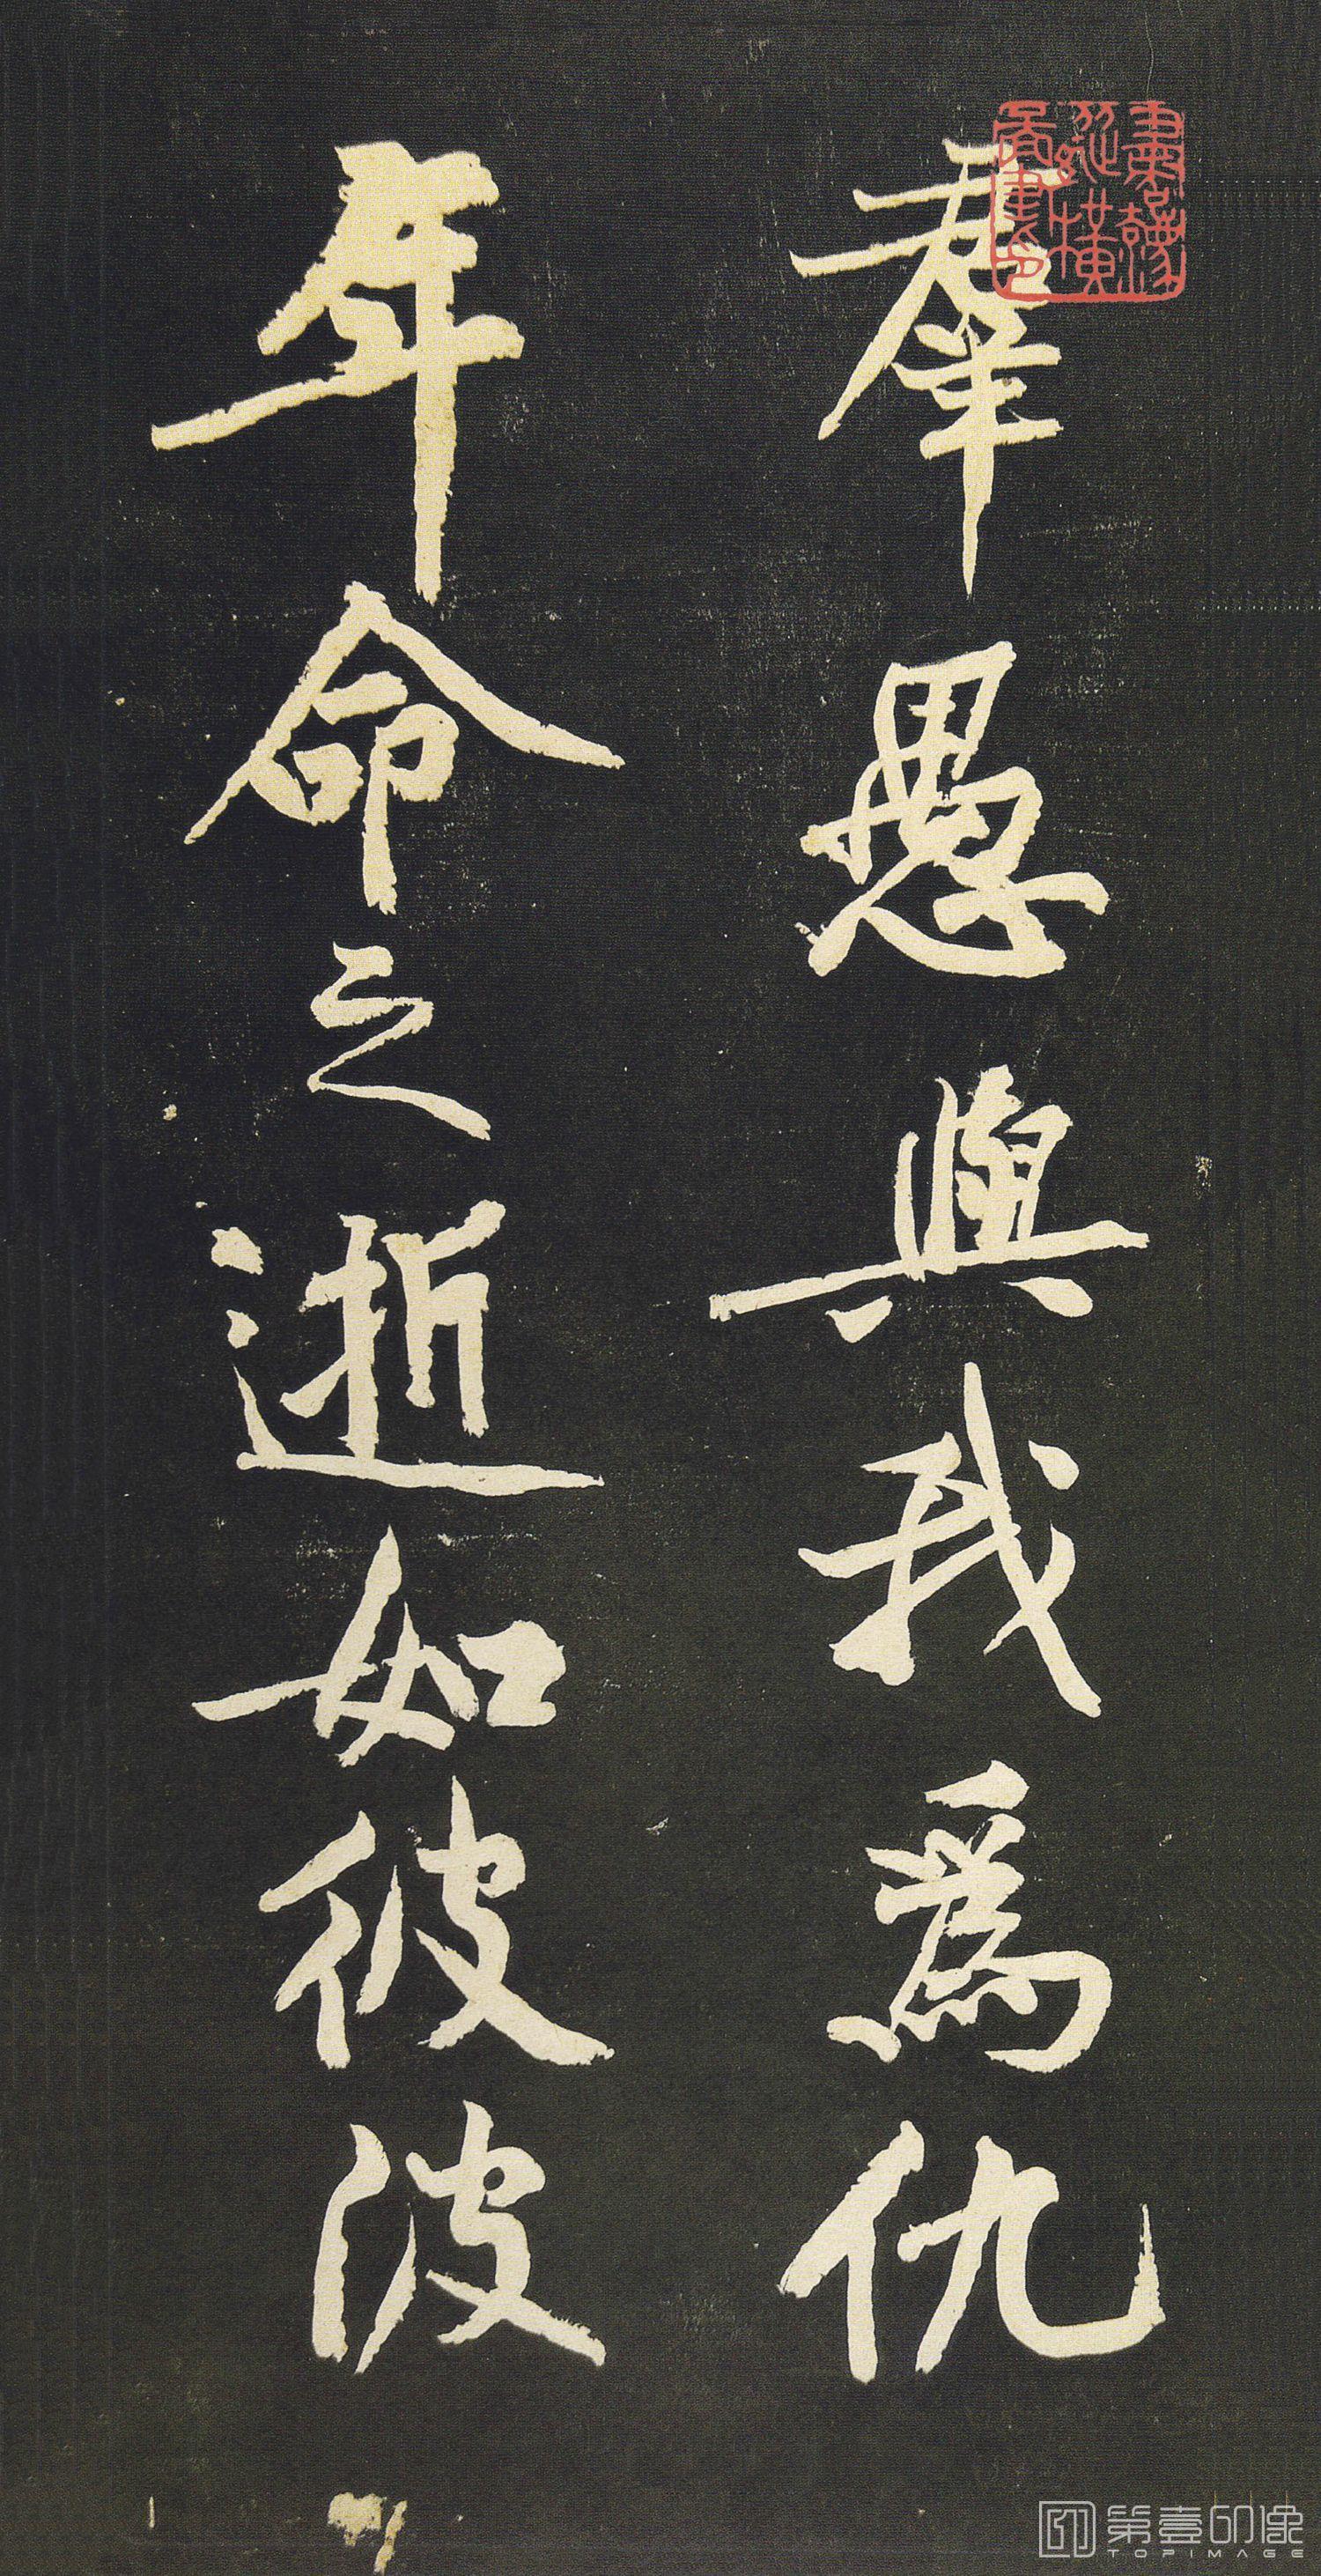 羣愚與我為仇
年命之逝如彼波
第壹印像
TOPIMAGE